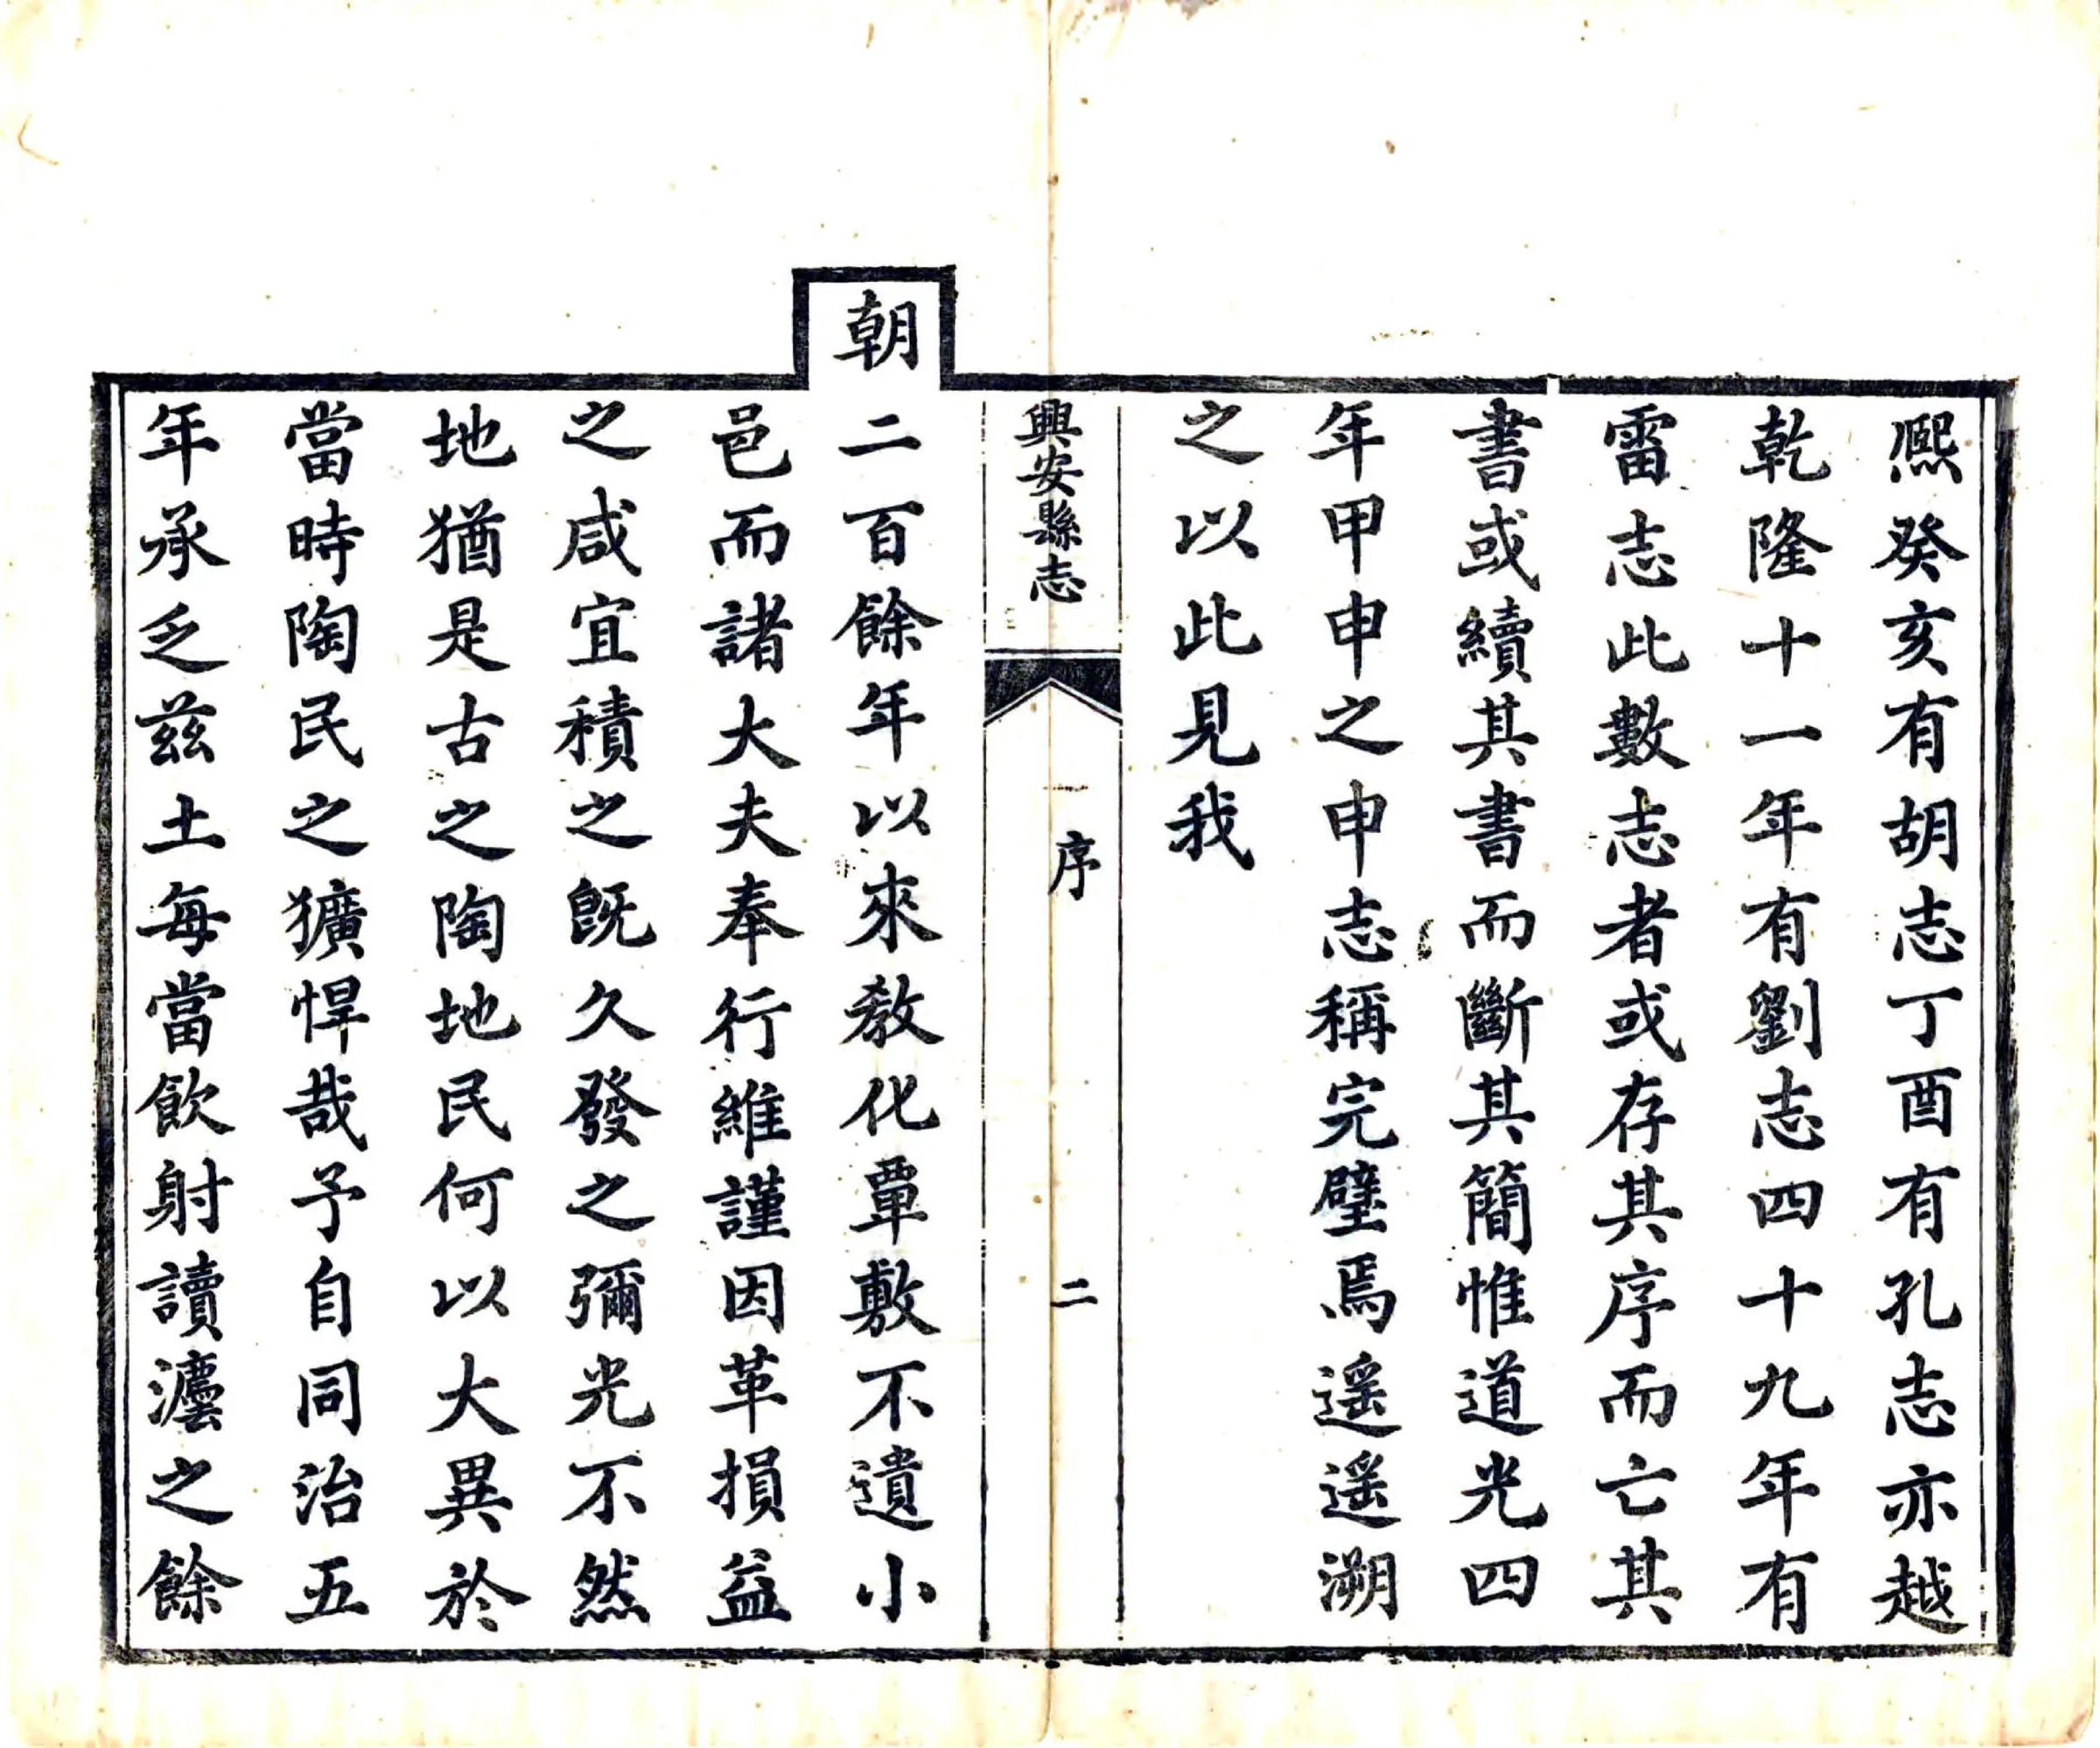 熈癸亥有胡志丁酉有孔志亦越
乾隆十一年有劉志四十九年有
雷志此數志者或存其序而亡其
書或續其書而斷其簡惟道光四
年甲申之申志稱完璧焉遥遥溯
之以此見我
興安縣志
序
二
朝
二百餘年以來教化覃敷不遺小
邑而諸大夫奉行維謹因革損益
之咸宜積之既久發之彌光不然
地猶是古之陶地民何以大異於
當時陶民之獷悍哉予自同治五
年承乏兹土每當飲射讀灋之餘